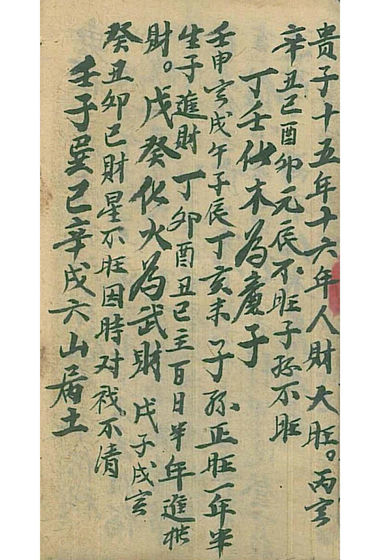 贵子十五年十六年人财大旺。丙亥
辛丑巳酉卯元辰不旺子孙不旺
丁壬化木為慶子
壬申亥戌午子辰丁亥未子孙正旺一年半
生子進财丁卯酉丑巳主百日半年進橫
财。戊癸化火為武财戊子戌亥
癸丑卯巳财星不旺因時对戏不清
壬子巽巳辛戌六山屬土